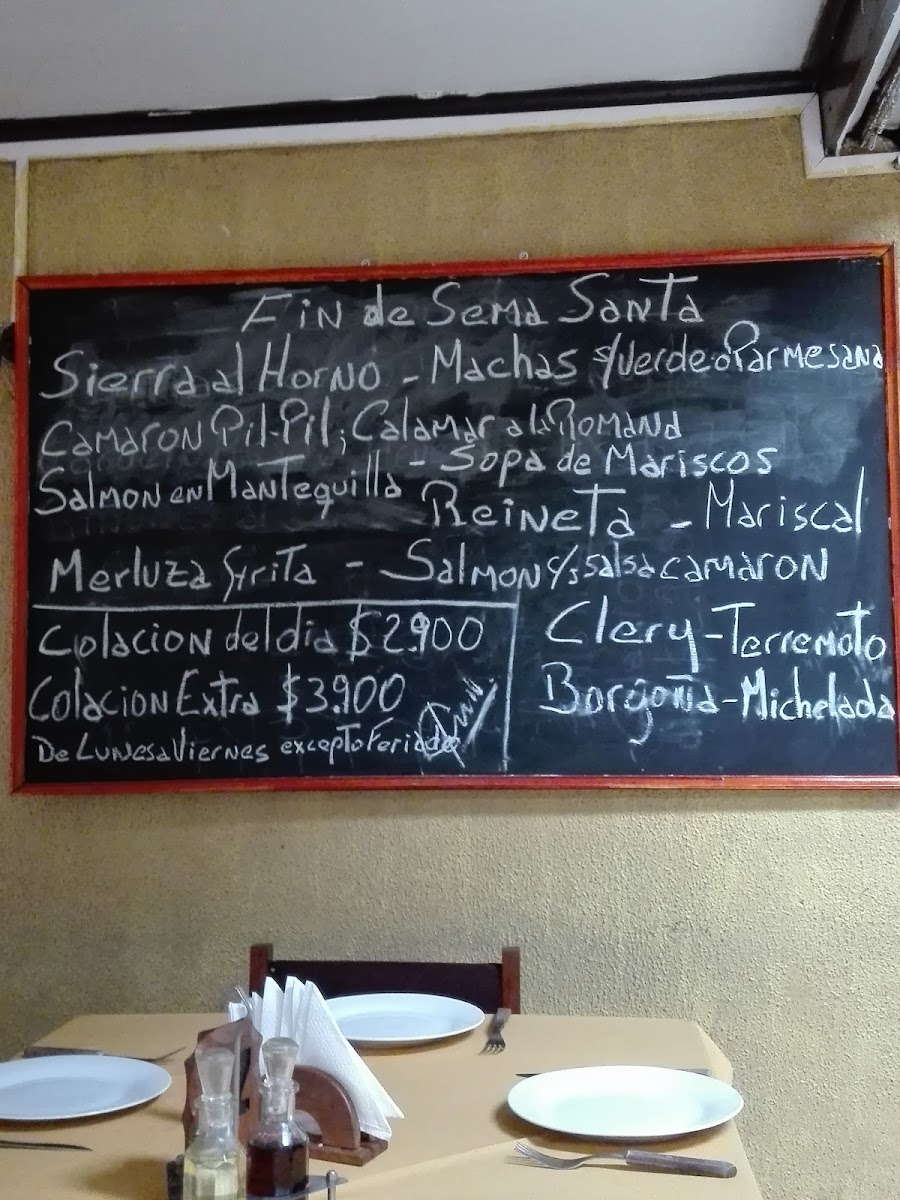 Fin de Sema Santa
Sierra al Horno - Machas S/Verde o Parmesana
Camaron Pil-Pil; Calamar a la Romana
Salmon en Mantequilla - Sopa de Mariscos
Reineta - Mariscal
Merluza frita - Salmon c/salsa camaron
Colacion del dia $2.900
Colacion Extra $3.900
De Lunes a Viernes excepto Feriado
Clery - Terremoto
Borgoña - Michelada